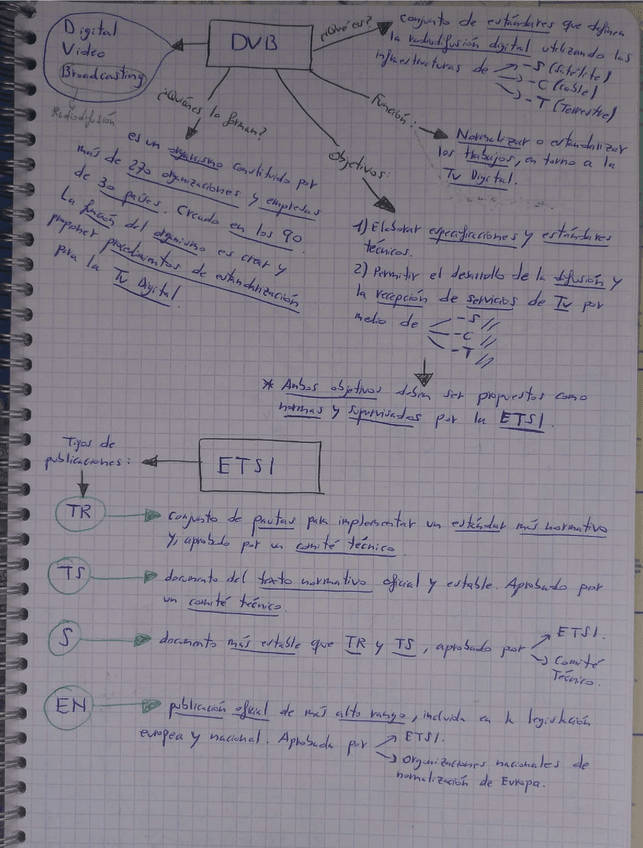 Digital
Video
Broadcasting
Radiodifusión
DVB
¿Qué es?
conjunto de estándares que definen
la radiodifusión digital utilizando las
infraestructuras de -S (Satélite)
-C (Cable)
-T (Terrestre)
¿Quiénes lo forman?
es un organismo constituido por
más de 270 organizaciones y empresas
de 30 países. Creado en los 90.
La función del organismo es crear y
proponer procedimientos de estandarización
para la Tv Digital.
Función:
Normalizar o estandarizar
los trabajos, en torno a la
Tv Digital.
Objetivos:
1) Elaborar especificaciones y estándares
técnicos.
2) Permitir el desarrollo de la difusión y
la recepción de servicios de Tv por
medio de -S //
-C //
-T //
* Ambos objetivos deben ser propuestos como
normas y supervisados por la ETSI.
ETSI
Tipos de
publicaciones:
TR
conjunto de pautas para implementar un estándar más normativo
y, aprobado por un comité técnico.
TS
documento del texto normativo oficial y estable. Aprobado por
un comité técnico.
S
documento más estable que TR y TS, aprobado por ETSI.
Comité
Técnico.
EN
publicación oficial de más alto rango, incluida en la legislación
europea y nacional. Aprobada por ETSI.
Organizaciones nacionales de
normalización de Europa.